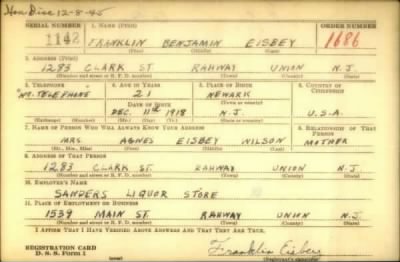 Hon Disc 12-8-45
SERIAL NUMBER 1. NAME (Print) ORDER NUMBER
1142 FRANKLIN BENJAMIN EISBEY 1686
(First) (Middle) (Last)
2. ADDRESS (Print)
1283 CLARK ST. RAHWAY UNION N.J.
(Number and street or R. F. D. number) (Town) (County) (State)
3. TELEPHONE 4. AGE IN YEARS 5. PLACE OF BIRTH 6. COUNTRY OF CITIZENSHIP
"NO-TELEPHONE" 21 NEWARK
DATE OF BIRTH (Town or county)
DEC. 11TH 1918 N.J. U.S.A.
(Exchange) (Number) (Mo.) (Day) (Yr.) (State or country)
7. NAME OF PERSON WHO WILL ALWAYS KNOW YOUR ADDRESS 8. RELATIONSHIP OF THAT PERSON
MRS AGNES EISBEY WILSON MOTHER
(Mr., Mrs., Miss) (First) (Middle) (Last)
9. ADDRESS OF THAT PERSON
1283 CLARK ST. RAHWAY UNION N.J.
(Number and street or R. F. D. number) (Town) (County) (State)
10. EMPLOYER'S NAME
SANDERS LIQUOR STORE
11. PLACE OF EMPLOYMENT OR BUSINESS
1539 MAIN ST. RAHWAY UNION N.J.
(Number and street or R. F. D. number) (Town) (County) (State)
I AFFIRM THAT I HAVE VERIFIED ABOVE ANSWERS AND THAT THEY ARE TRUE.
REGISTRATION CARD
D. S. S. Form 1 Franklin Eisbey
(over) (Registrant's signature)